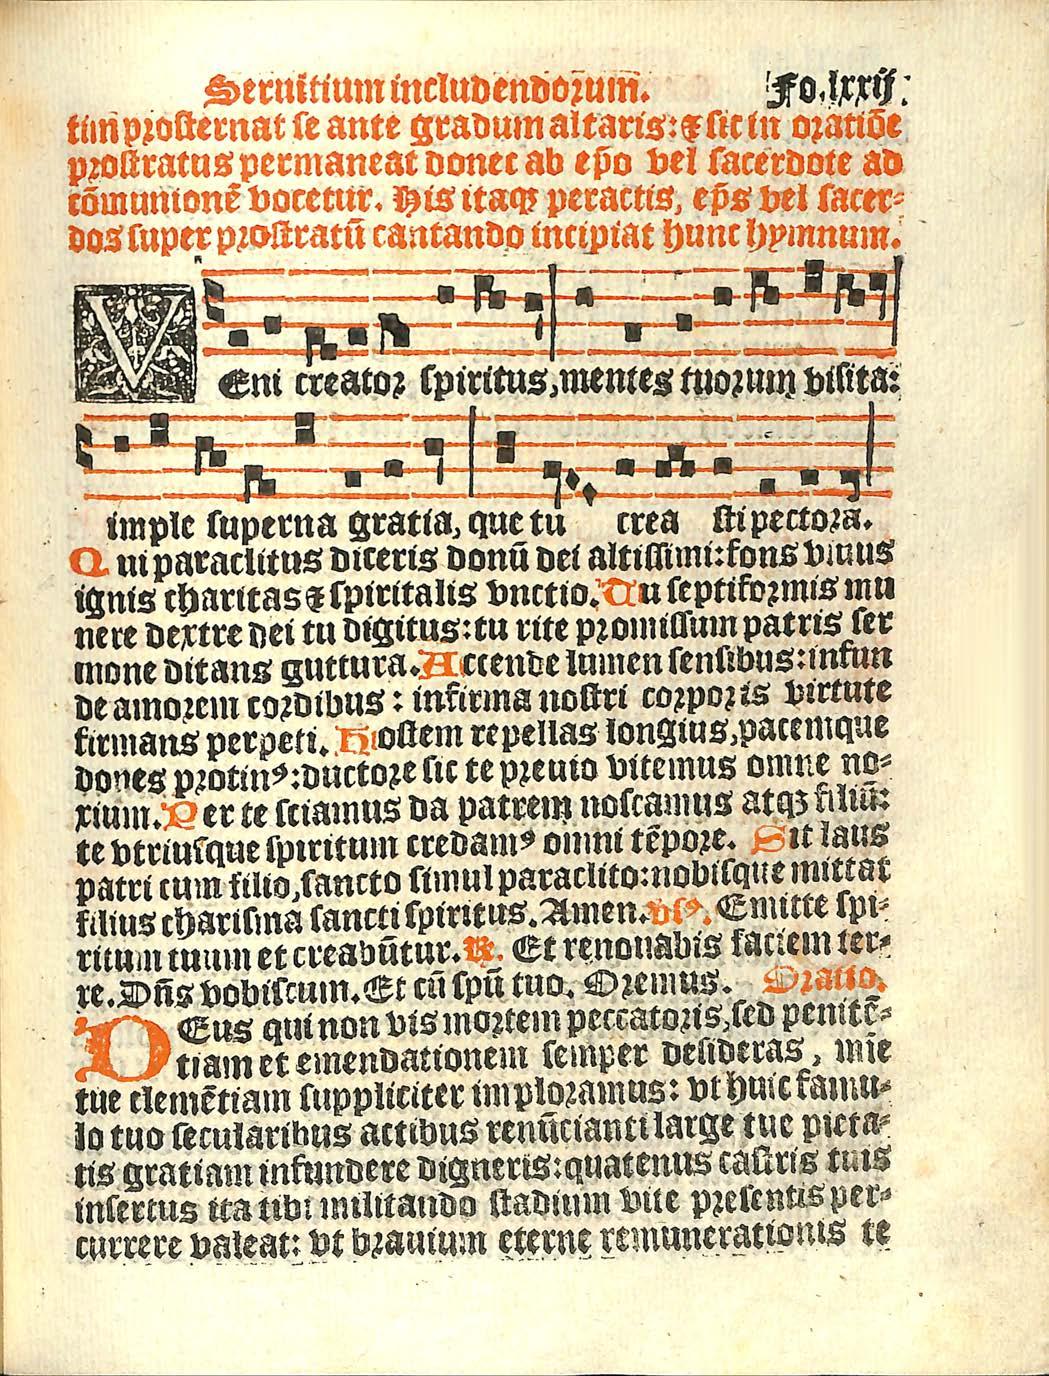 Seruitium includendorum. Fo. lxxij.
tim prosternat se ante gradum altaris: & sic in oratiõe
prostratus permaneat donec ab ep̃o vel sacerdote ad
cõmunionẽ vocetur. His itaqꝫ peractis, ep̃s vel sacer-
dos super prostratũ cantando incipiat hunc hymnum.
VEni creator spiritus, mentes tuorum visita:
imple superna gratia, que tu crea sti pectora.
Qui paraclitus diceris donũ dei altissimi: fons viuus
ignis charitas & spiritalis vnctio. Tu septiformis mu
nere dextre dei tu digitus: tu rite promissum patris ser
mone ditans guttura. Accende lumen sensibus: infun
de amorem cordibus: infirma nostri corporis virtute
firmans perpeti. Hostem repellas longius, pacemque
dones protinꝰ: ductore sic te preuio vitemus omne no-
xium. Per te sciamus da patrem noscamus atqꝫ filiũ:
te vtriusque spiritum credamꝰ omni tẽpore. Sit laus
patri cum filio, sancto simul paraclito: nobisque mittat
filius charisma sancti spiritus. Amen. vsꝰ. Emitte spi-
ritum tuum et creabũtur. ℟. Et renouabis faciem ter-
re. Dñs vobiscum. Et cũ spũ tuo. Oremus. Oratio.
DEus qui non vis mortem peccatoris, sed penitẽ-
tiam et emendationem semper desideras, mĩe
tue clemẽtiam suppliciter imploramus: vt huic famu-
lo tuo secularibus actibus renũcianti large tue pieta-
tis gratiam infundere digneris: quatenus castris tuis
insertus ita tibi militando stadium vite presentis per-
currere valeat: vt brauium eterne remunerationis te